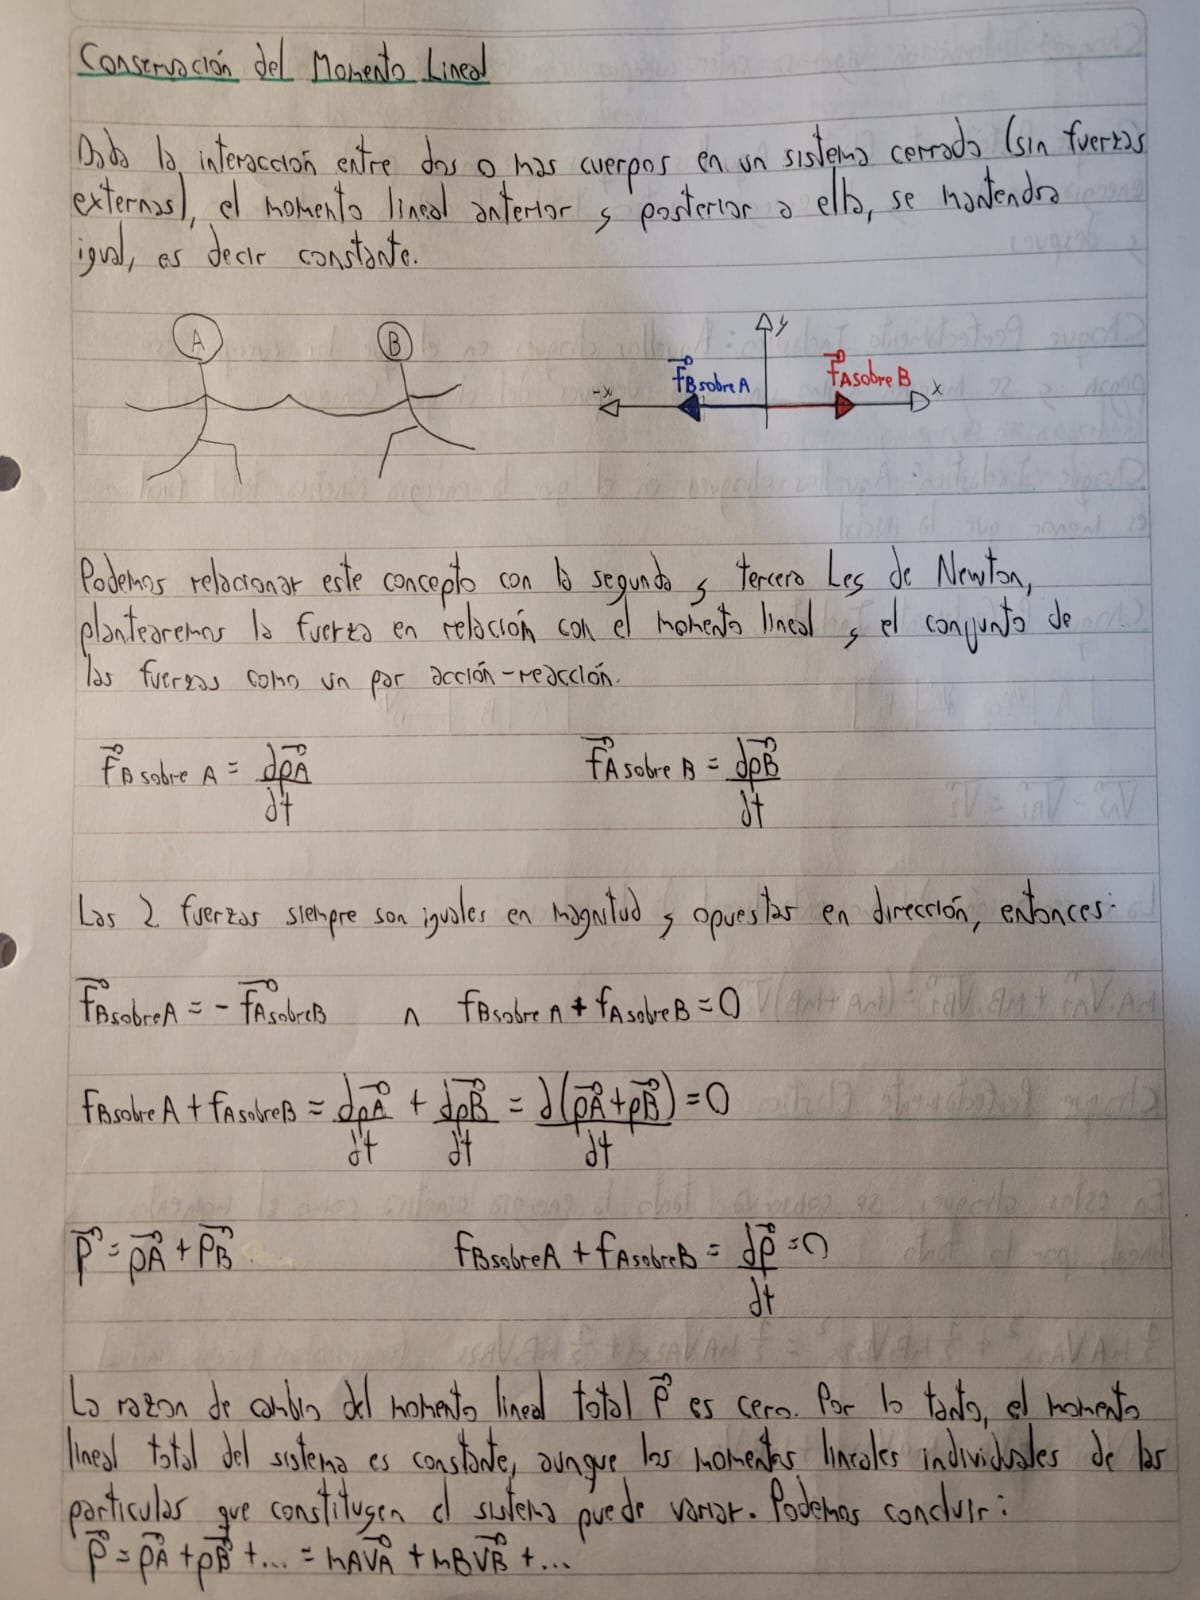 Conservación del Momento Lineal
Dada la interacción entre dos o mas cuerpos en un sistema cerrado (sin fuerzas
externas), el momento lineal anterior y posterior a ella, se mantendra
igual, es decir constante.
A B
y
F⃗B sobre A F⃗A sobre B
-x x
Podemos relacionar este concepto con la segunda y tercera Ley de Newton,
plantearemos la fuerza en relación con el momento lineal y el conjunto de
las fuerzas como un par acción-reacción.
F⃗B sobre A = dp⃗A/dt F⃗A sobre B = dp⃗B/dt
Las 2 fuerzas siempre son iguales en magnitud y opuestas en dirección, entonces:
F⃗B sobre A = - F⃗A sobre B ∧ fB sobre A + fA sobre B = 0
fB sobre A + fA sobre B = dp⃗A/dt + dp⃗B/dt = d(p⃗A + p⃗B)/dt = 0
P⃗ = p⃗A + p⃗B fB sobre A + fA sobre B = dp⃗/dt = 0
La razon de cambio del momento lineal total P⃗ es cero. Por lo tanto, el momento
lineal total del sistema es constante, aunque los momentos lineales individuales de las
particulas que constituyen el sistema puede variar. Podemos concluir:
P⃗ = p⃗A + p⃗B + ... = mAv⃗A + mBv⃗B + ...